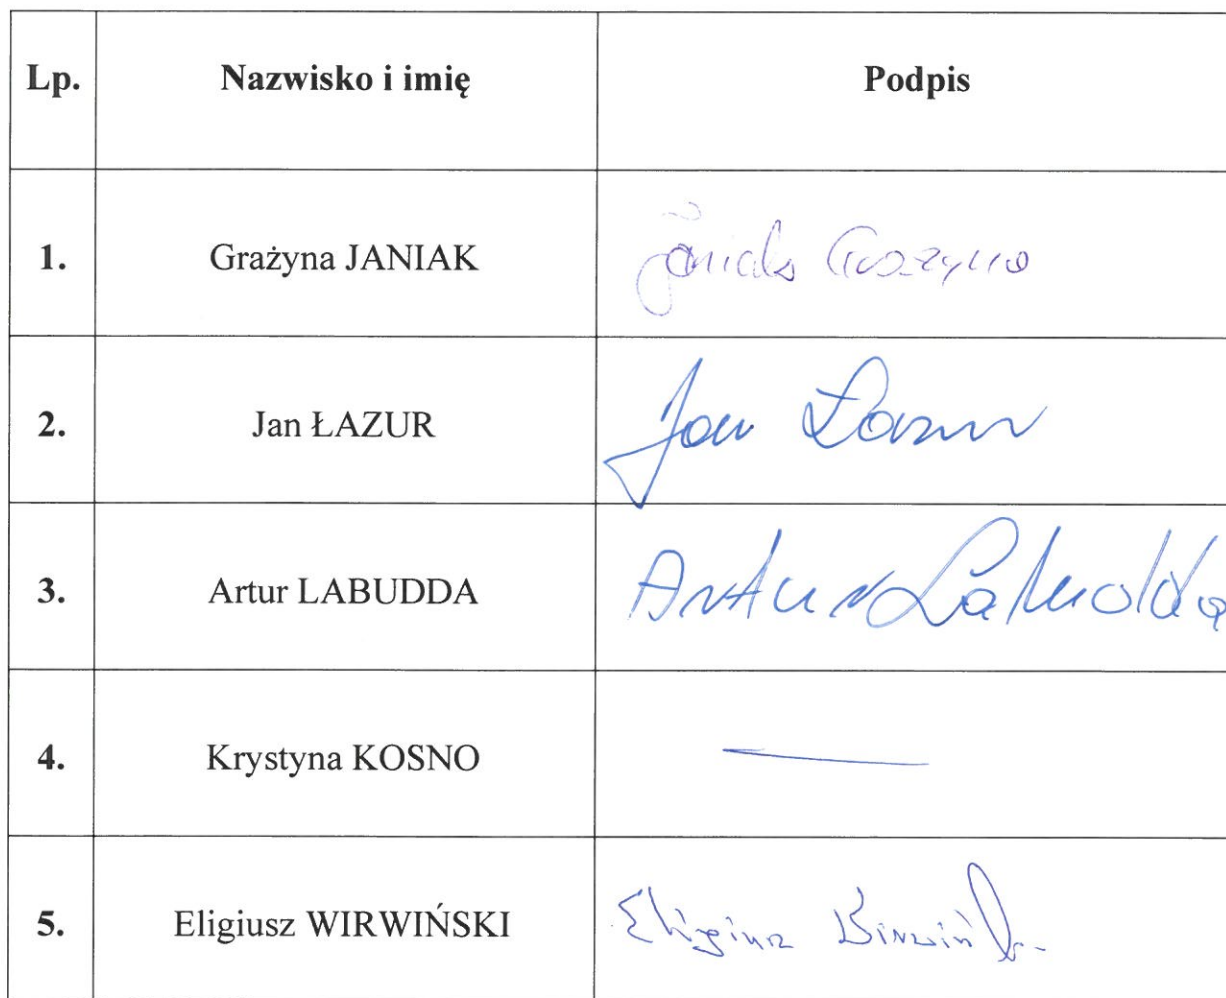 Lp. Nazwisko i imię Podpis
1. Grażyna JANIAK Janiak Grażyna
2. Jan ŁAZUR Jan Łazur
3. Artur LABUDDA Artur Labudda
4. Krystyna KOSNO —
5. Eligiusz WIRWIŃSKI Eligiusz Wirwiński